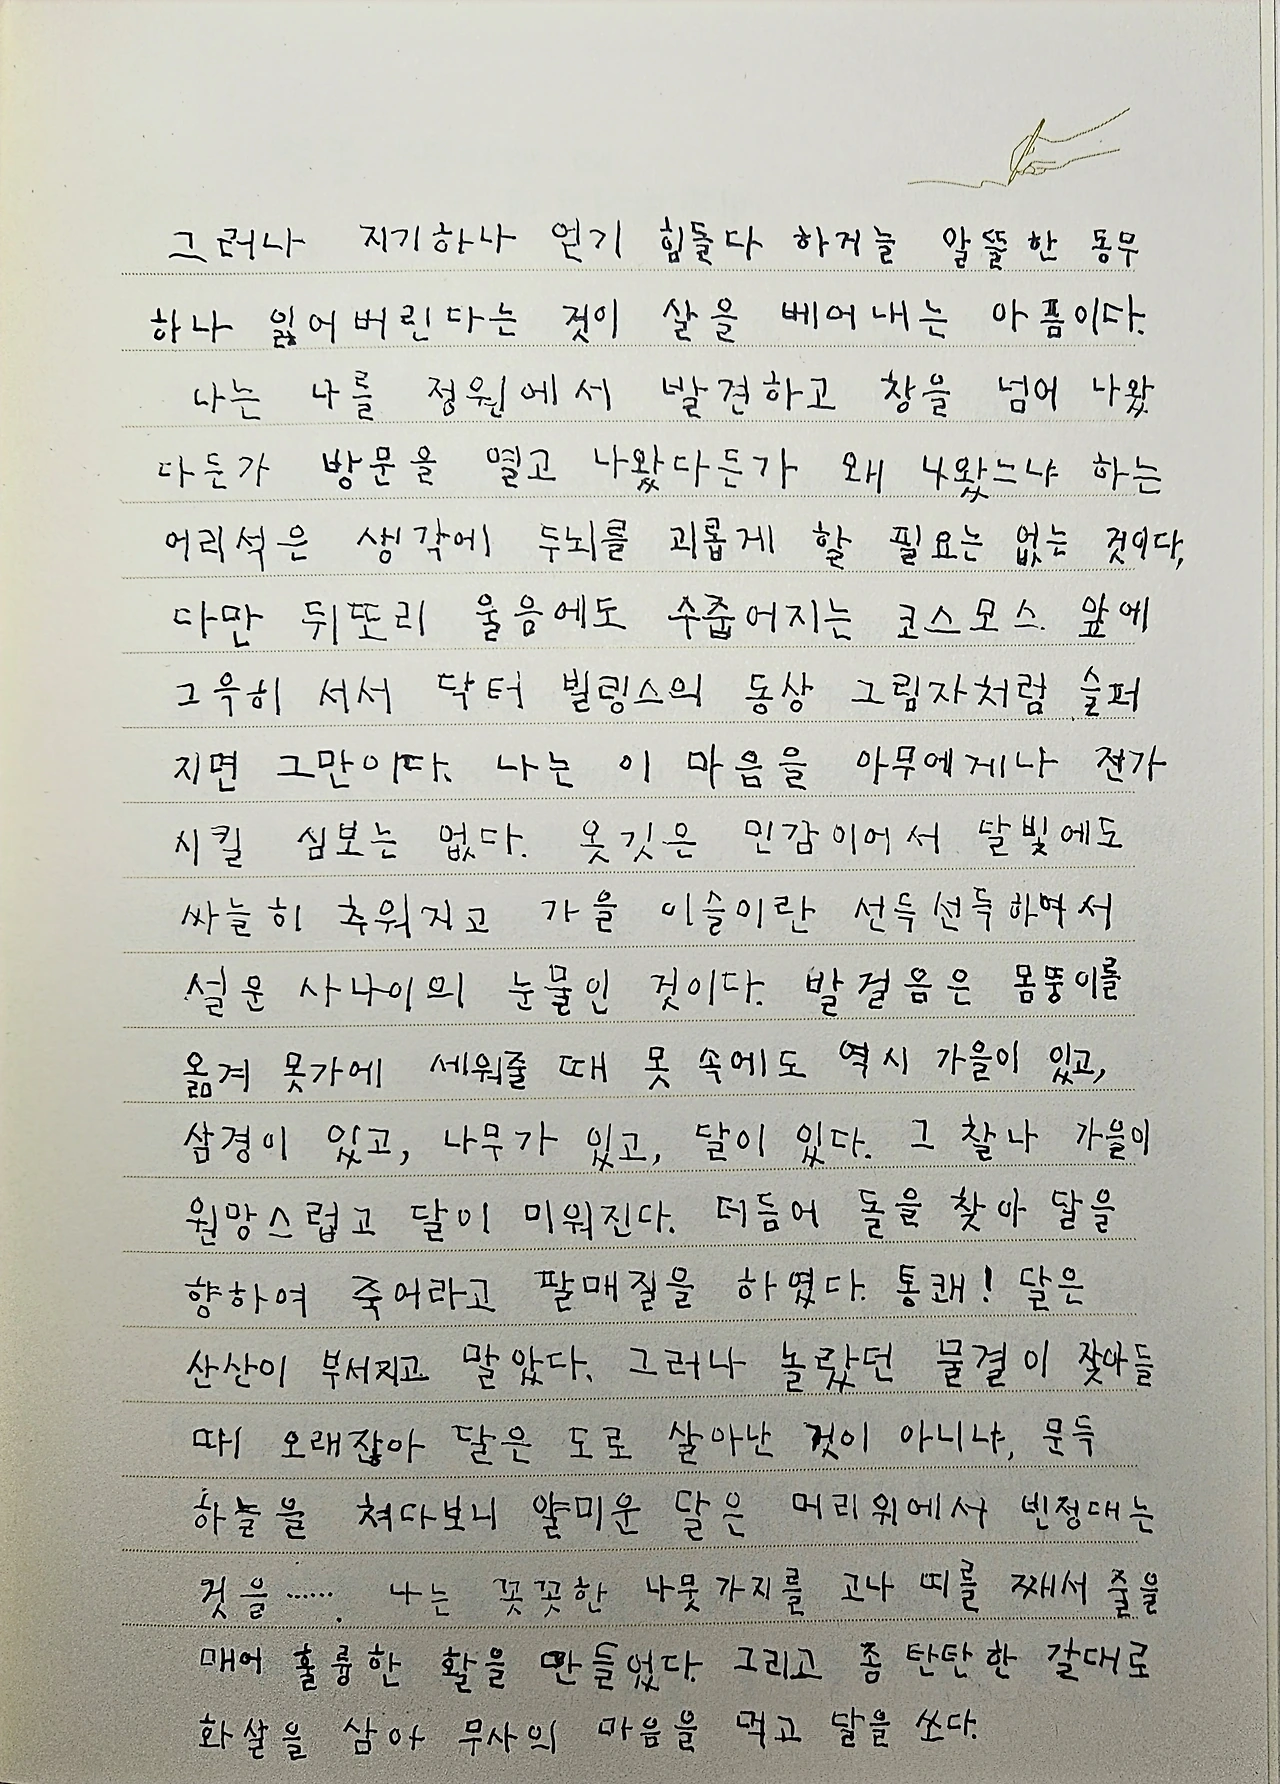 그러나 지기하나 얻기 힘들다 하거늘 알뜰한 동무
하나 잃어버린다는 것이 살을 베어내는 아픔이다.
나는 나를 정원에서 발견하고 창을 넘어 나왔
다든가 방문을 열고 나왔다든가 왜 나왔느냐 하는
어리석은 생각에 두뇌를 괴롭게 할 필요는 없는 것이다,
다만 뒤또리 울음에도 수줍어지는 코스모스 앞에
그윽히 서서 닥터 빌링스의 동상 그림자처럼 슬퍼
지면 그만이다. 나는 이 마음을 아무에게나 전가
시킬 심보는 없다. 옷깃은 민감이어서 달빛에도
싸늘히 추워지고 가을 이슬이란 선득선득하여서
설운 사나이의 눈물인 것이다. 발걸음은 몸뚱이를
옮겨 못가에 세워줄 때 못 속에도 역시 가을이 있고,
삼경이 있고, 나무가 있고, 달이 있다. 그 찰나 가을이
원망스럽고 달이 미워진다. 더듬어 돌을 찾아 달을
향하여 죽어라고 팔매질을 하였다. 통쾌! 달은
산산이 부서지고 말았다. 그러나 놀랐던 물결이 잦아들
때 오래잖아 달은 도로 살아난 것이 아니냐, 문득
하늘을 쳐다보니 얄미운 달은 머리위에서 빈정대는
것을 ....... 나는 꼿꼿한 나뭇가지를 고나 띠를 째서 줄을
매어 훌륭한 활을 만들었다. 그리고 좀 탄탄한 갈대로
화살을 삼아 무사의 마음을 먹고 달을 쏘다.